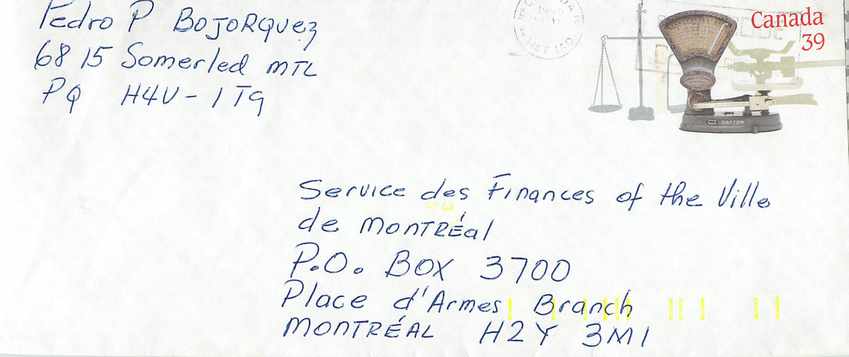 Pedro P Bojorquez
6815 Somerled MTL
PQ H4V-1T9
Canada
39
Service des Finances of the Ville
de Montréal
P.O. Box 3700
Place d'Armes Branch
MONTRÉAL H2Y 3M1